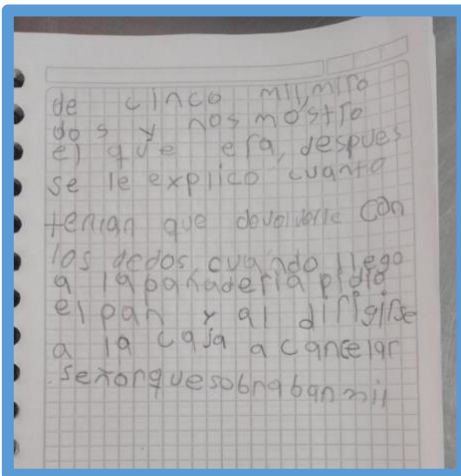 de cinco mil, miro
dos y nos mostro
el que era, despues
se le explico cuanto
tenian que devolverle con
los dedos, cuando llego
a la panaderia pidio
el pan y al dirigirse
a la caja a cancelar
sobraban mil